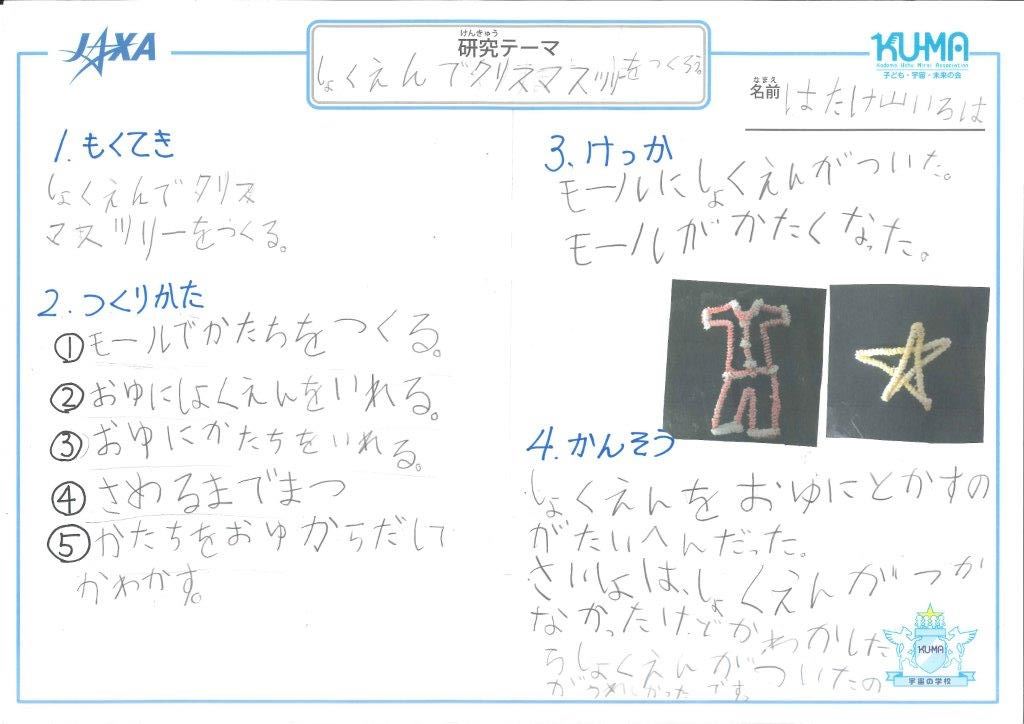 JAXA
けんきゅう
研究テーマ
しょくえんでクリスマスツリーをつくろう。
KU-MA
Kodomo Uchu Mirai Association
子ども・宇宙・未来の会
なまえ
名前 はたけ山いろは
1. もくてき
しょくえんでクリス
マスツリーをつくる。
2. つくりかた
①モールでかたちをつくる。
②おゆにしょくえんをいれる。
③おゆにかたちをいれる。
④さわるまでまつ
⑤かたちをおゆからだして
かわかす。
3. けっか
モールにしょくえんがついた。
モールがかたくなった。
4. かんそう
しょくえんをおゆにとかすの
がたいへんだった。
さいしょは、しょくえんがつか
なかったけどかわかした
らしょくえんがついたの
がうれしかったです。
KU-MA
宇宙の学校